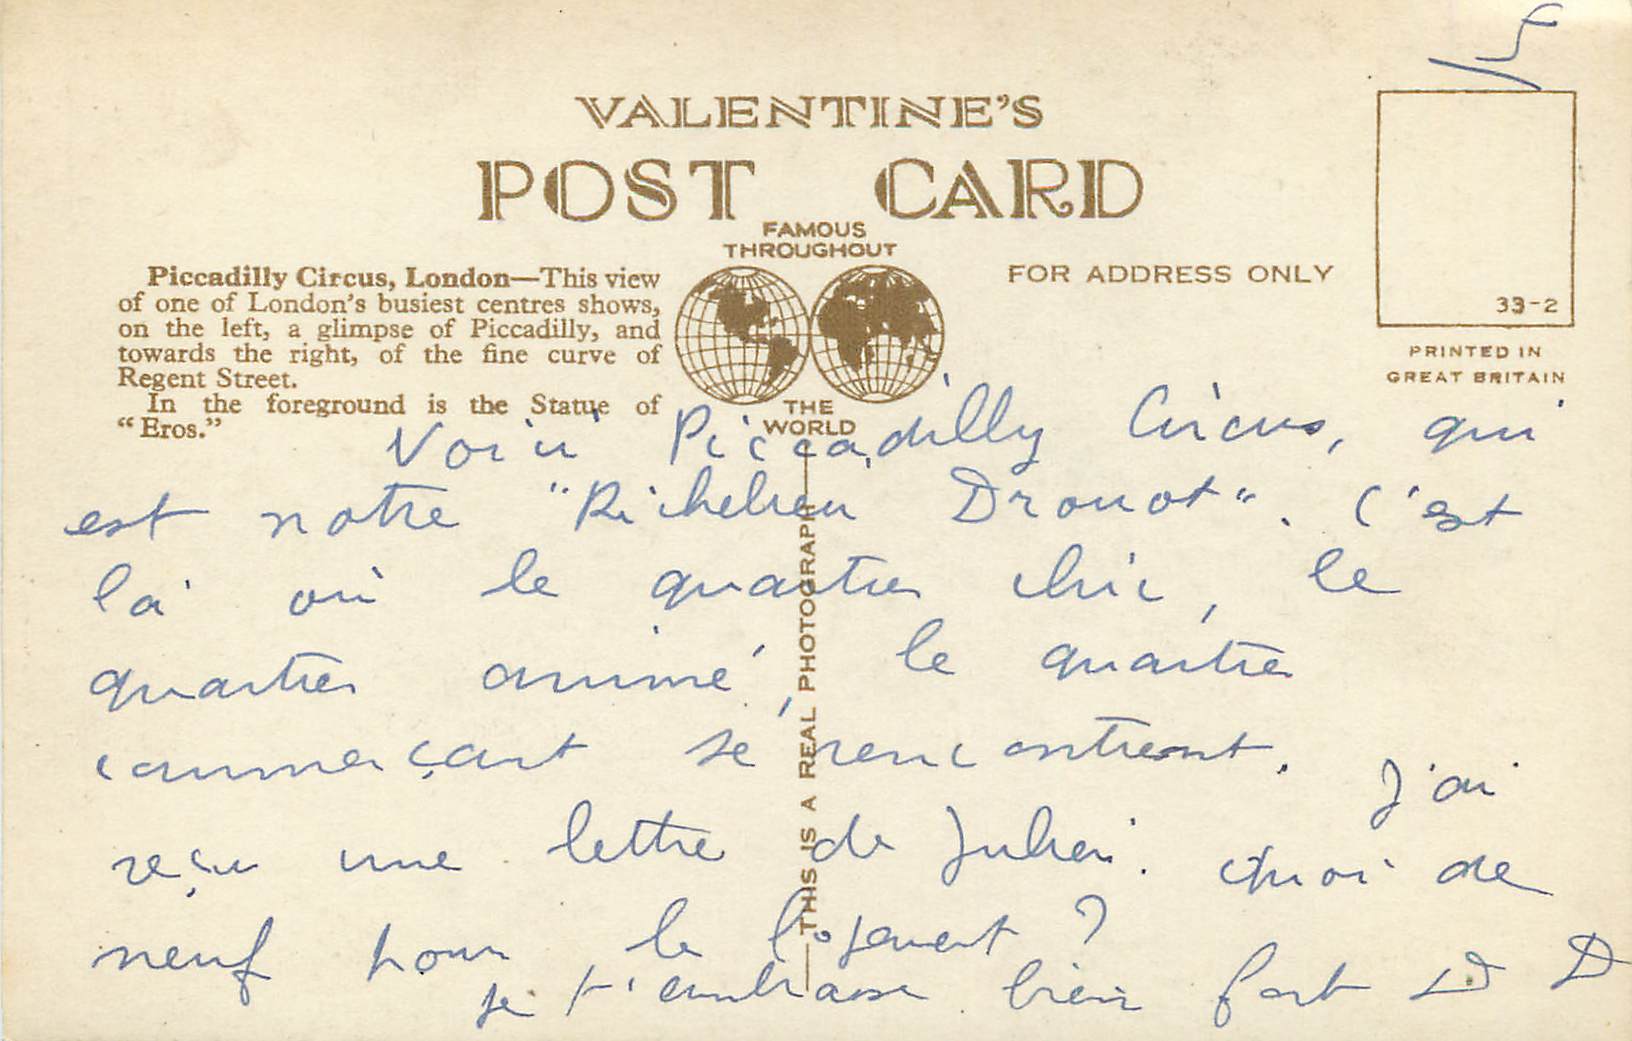 VALENTINE'S
POST CARD
FAMOUS
THROUGHOUT
THE
WORLD
Piccadilly Circus, London—This view
of one of London's busiest centres shows,
on the left, a glimpse of Piccadilly, and
towards the right, of the fine curve of
Regent Street.
In the foreground is the Statue of
"Eros."
FOR ADDRESS ONLY
33-2
PRINTED IN
GREAT BRITAIN
THIS IS A REAL PHOTOGRAPH
Voici Piccadilly Circus, qui
est notre "Richelieu Drouot". C'est
là où le quartier chic, le
quartier animé, le quartier
commerçant se rencontrent. J'ai
reçu une lettre de Julien. Quoi de
neuf pour le logement ?
Je t'embrasse bien fort